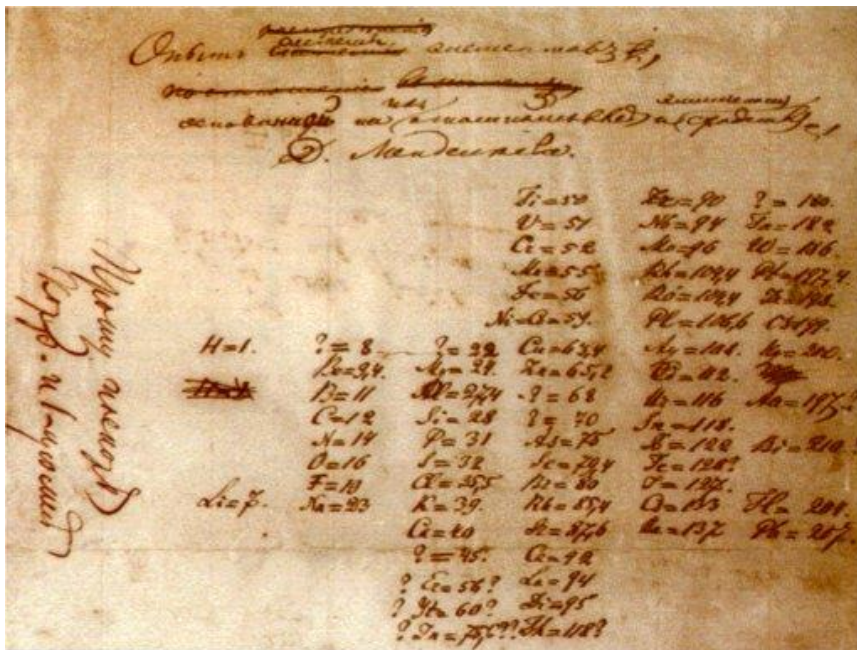 Опытъ системы
основанной на ихъ атомномъ вѣсѣ и химическомъ сходствѣ
Д. Менделѣева.
Ti=50 Zr=90 ?=180.
V=51 Nb=94 Ta=182
Cr=52 Mo=96 W=186
Mn=55 Rh=104,4 Pt=197,4
Fe=56 Ru=104,4 Ir=198.
Ni=Co=59. Pl=106,6 Os=199.
H=1. ?=8 ?=22 Cu=63,4 Ag=108. Hg=200.
Be=9,4. Mg=24. Zn=65,2 Cd=112.
B=11 Al=27,4 ?=68 Ur=116 Au=197?
C=12 Si=28 ?=70 Sn=118.
N=14 P=31 As=75 Sb=122 Bi=210.
O=16 S=32 Se=79,4 Te=128?
F=19 Cl=35,5 Br=80 J=127.
Li=7. Na=23 K=39. Rb=85,4 Cs=133 Tl=204.
Ca=40 Sr=87,6 Ba=137 Pb=207.
?=45. Ce=92
? Er=56? La=94
? Yt=60? Di=95
? In=75,6?? Th=118?